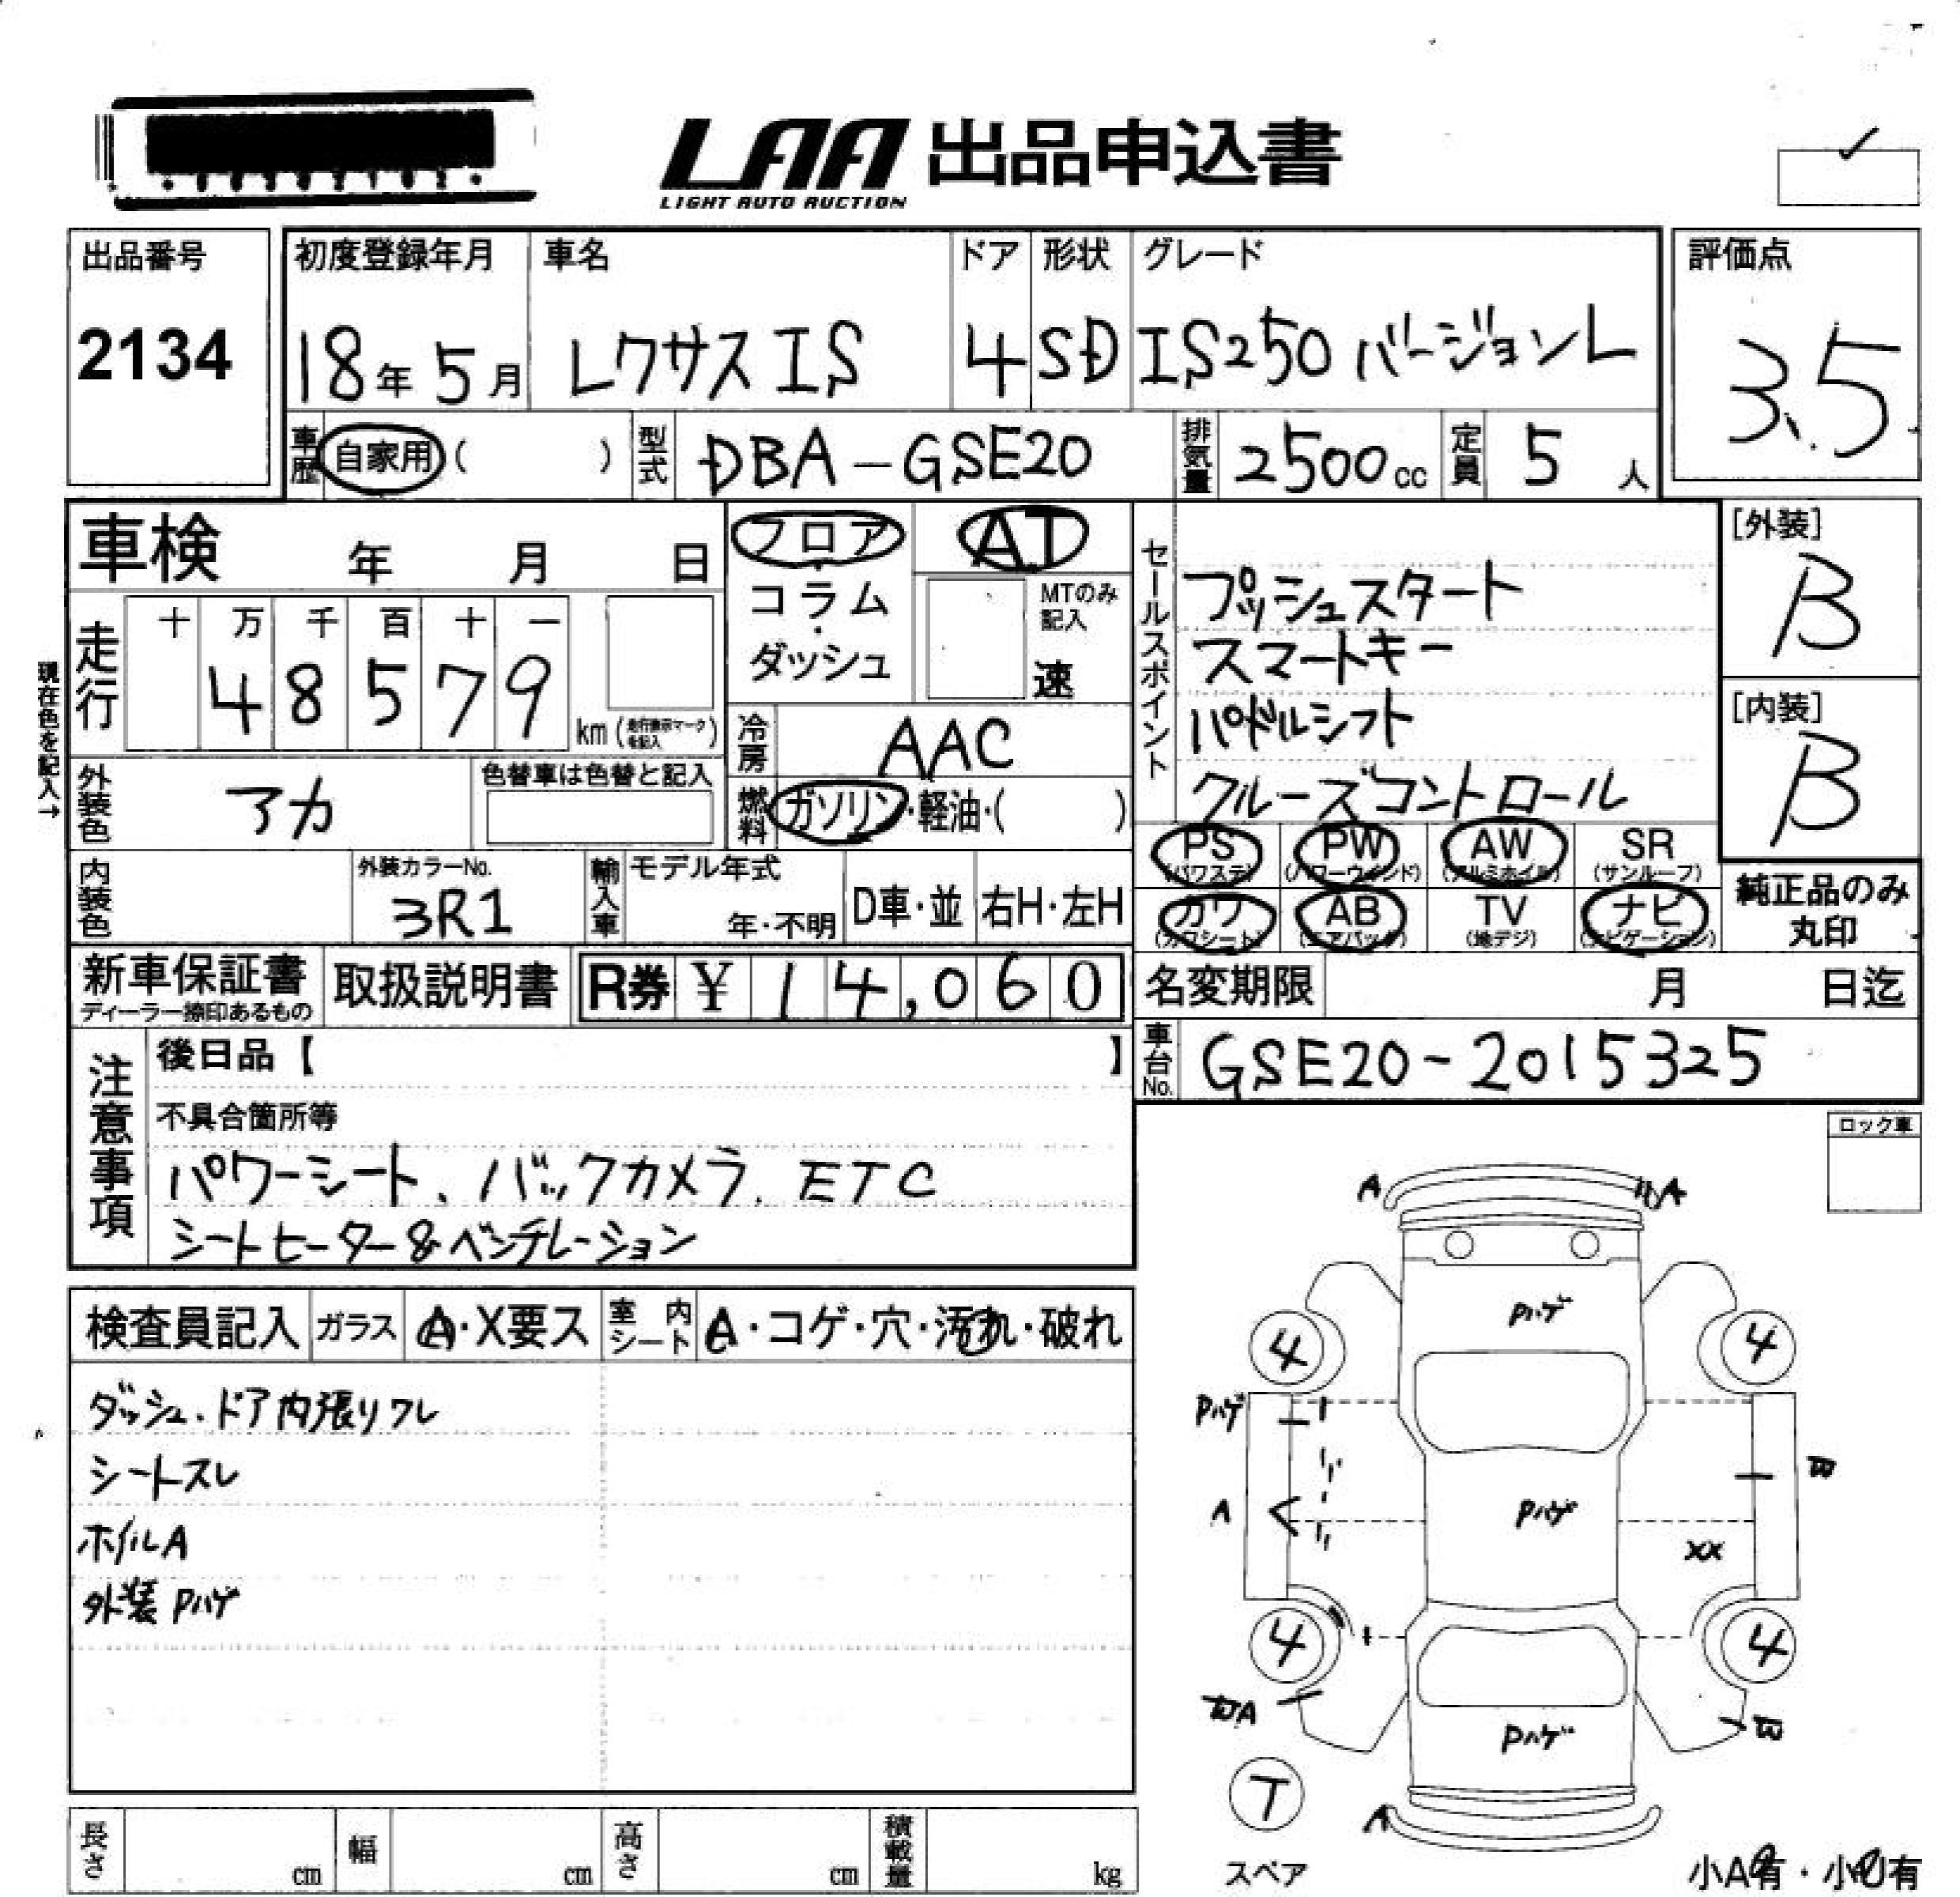 LAA 出品申込書
LIGHT AUTO AUCTION
出品番号
2134
初度登録年月
18年5月
車名
レクサスIS
ドア
4
形状
SD
グレード
IS250 バージョンL
評価点
3.5
車歴 自家用 ( )
型式 DBA-GSE20
排気量 2500cc
定員 5人
車検 年 月 日
フロア・コラム・ダッシュ
AT
MTのみ記入
速
走行
十 万 千 百 十 一
4 8 5 7 9
km (走行表示マークを記入)
現在色を記入→
冷房 AAC
燃料 ガソリン・軽油・( )
外装色 アカ
色替車は色替と記入
内装色
外装カラーNo.
3R1
輸入車
モデル年式
年・不明
D車・並
右H・左H
セールスポイント
プッシュスタート
スマートキー
パドルシフト
クルーズコントロール
[外装]
B
[内装]
B
PS (パワステ) PW (パワーウィンド) AW (アルミホイル) SR (サンルーフ)
カワ (カワシート) AB (エアバック) TV (地デジ) ナビ (ナビゲーション)
純正品のみ丸印
新車保証書
ディーラー捺印あるもの
取扱説明書
R券 ¥ 14,060
名変期限 月 日迄
車台No. GSE20-2015325
注意事項
後日品【 】
不具合箇所等
パワーシート、バックカメラ、ETC
シートヒーター&ベンチレーション
ロック車
検査員記入 ガラス A・X要ス 室内シート A・コゲ・穴・汚れ・破れ
ダッシュ、ドア内張りワレ
シートスレ
ホイルA
外装Pハゲ
A A
Pハゲ
4 4
Pハゲ
A Pハゲ
XX
4 4
A
Pハゲ
T
A
スペア
小A有・小U有
長さ cm 幅 cm 高さ cm 積載量 kg